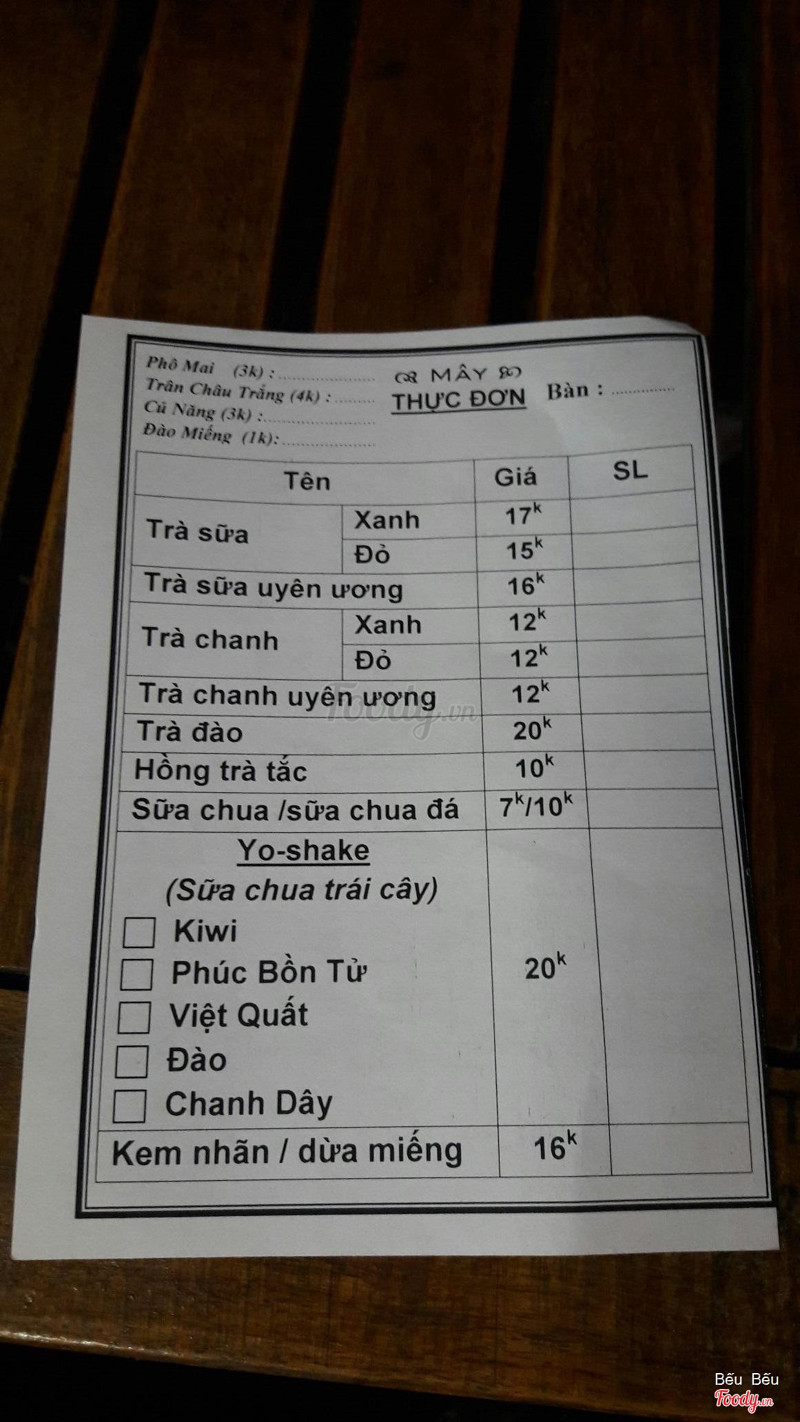 Phô Mai (3k) : ........................
Trân Châu Trắng (4k) : ..........
Củ Năng (3k) :............................
Đào Miếng (1k):........................
MÂY
THỰC ĐƠN
Bàn : ................
Tên Giá SL
Trà sữa Xanh 17k
Đỏ 15k
Trà sữa uyên ương 16k
Trà chanh Xanh 12k
Đỏ 12k
Trà chanh uyên ương 12k
Trà đào 20k
Hồng trà tắc 10k
Sữa chua /sữa chua đá 7k/10k
Yo-shake
(Sữa chua trái cây)
Kiwi
Phúc Bồn Tử 20k
Việt Quất
Đào
Chanh Dây
Kem nhãn / dừa miếng 16k
Foody.vn
Bếu Bếu
Foody.vn